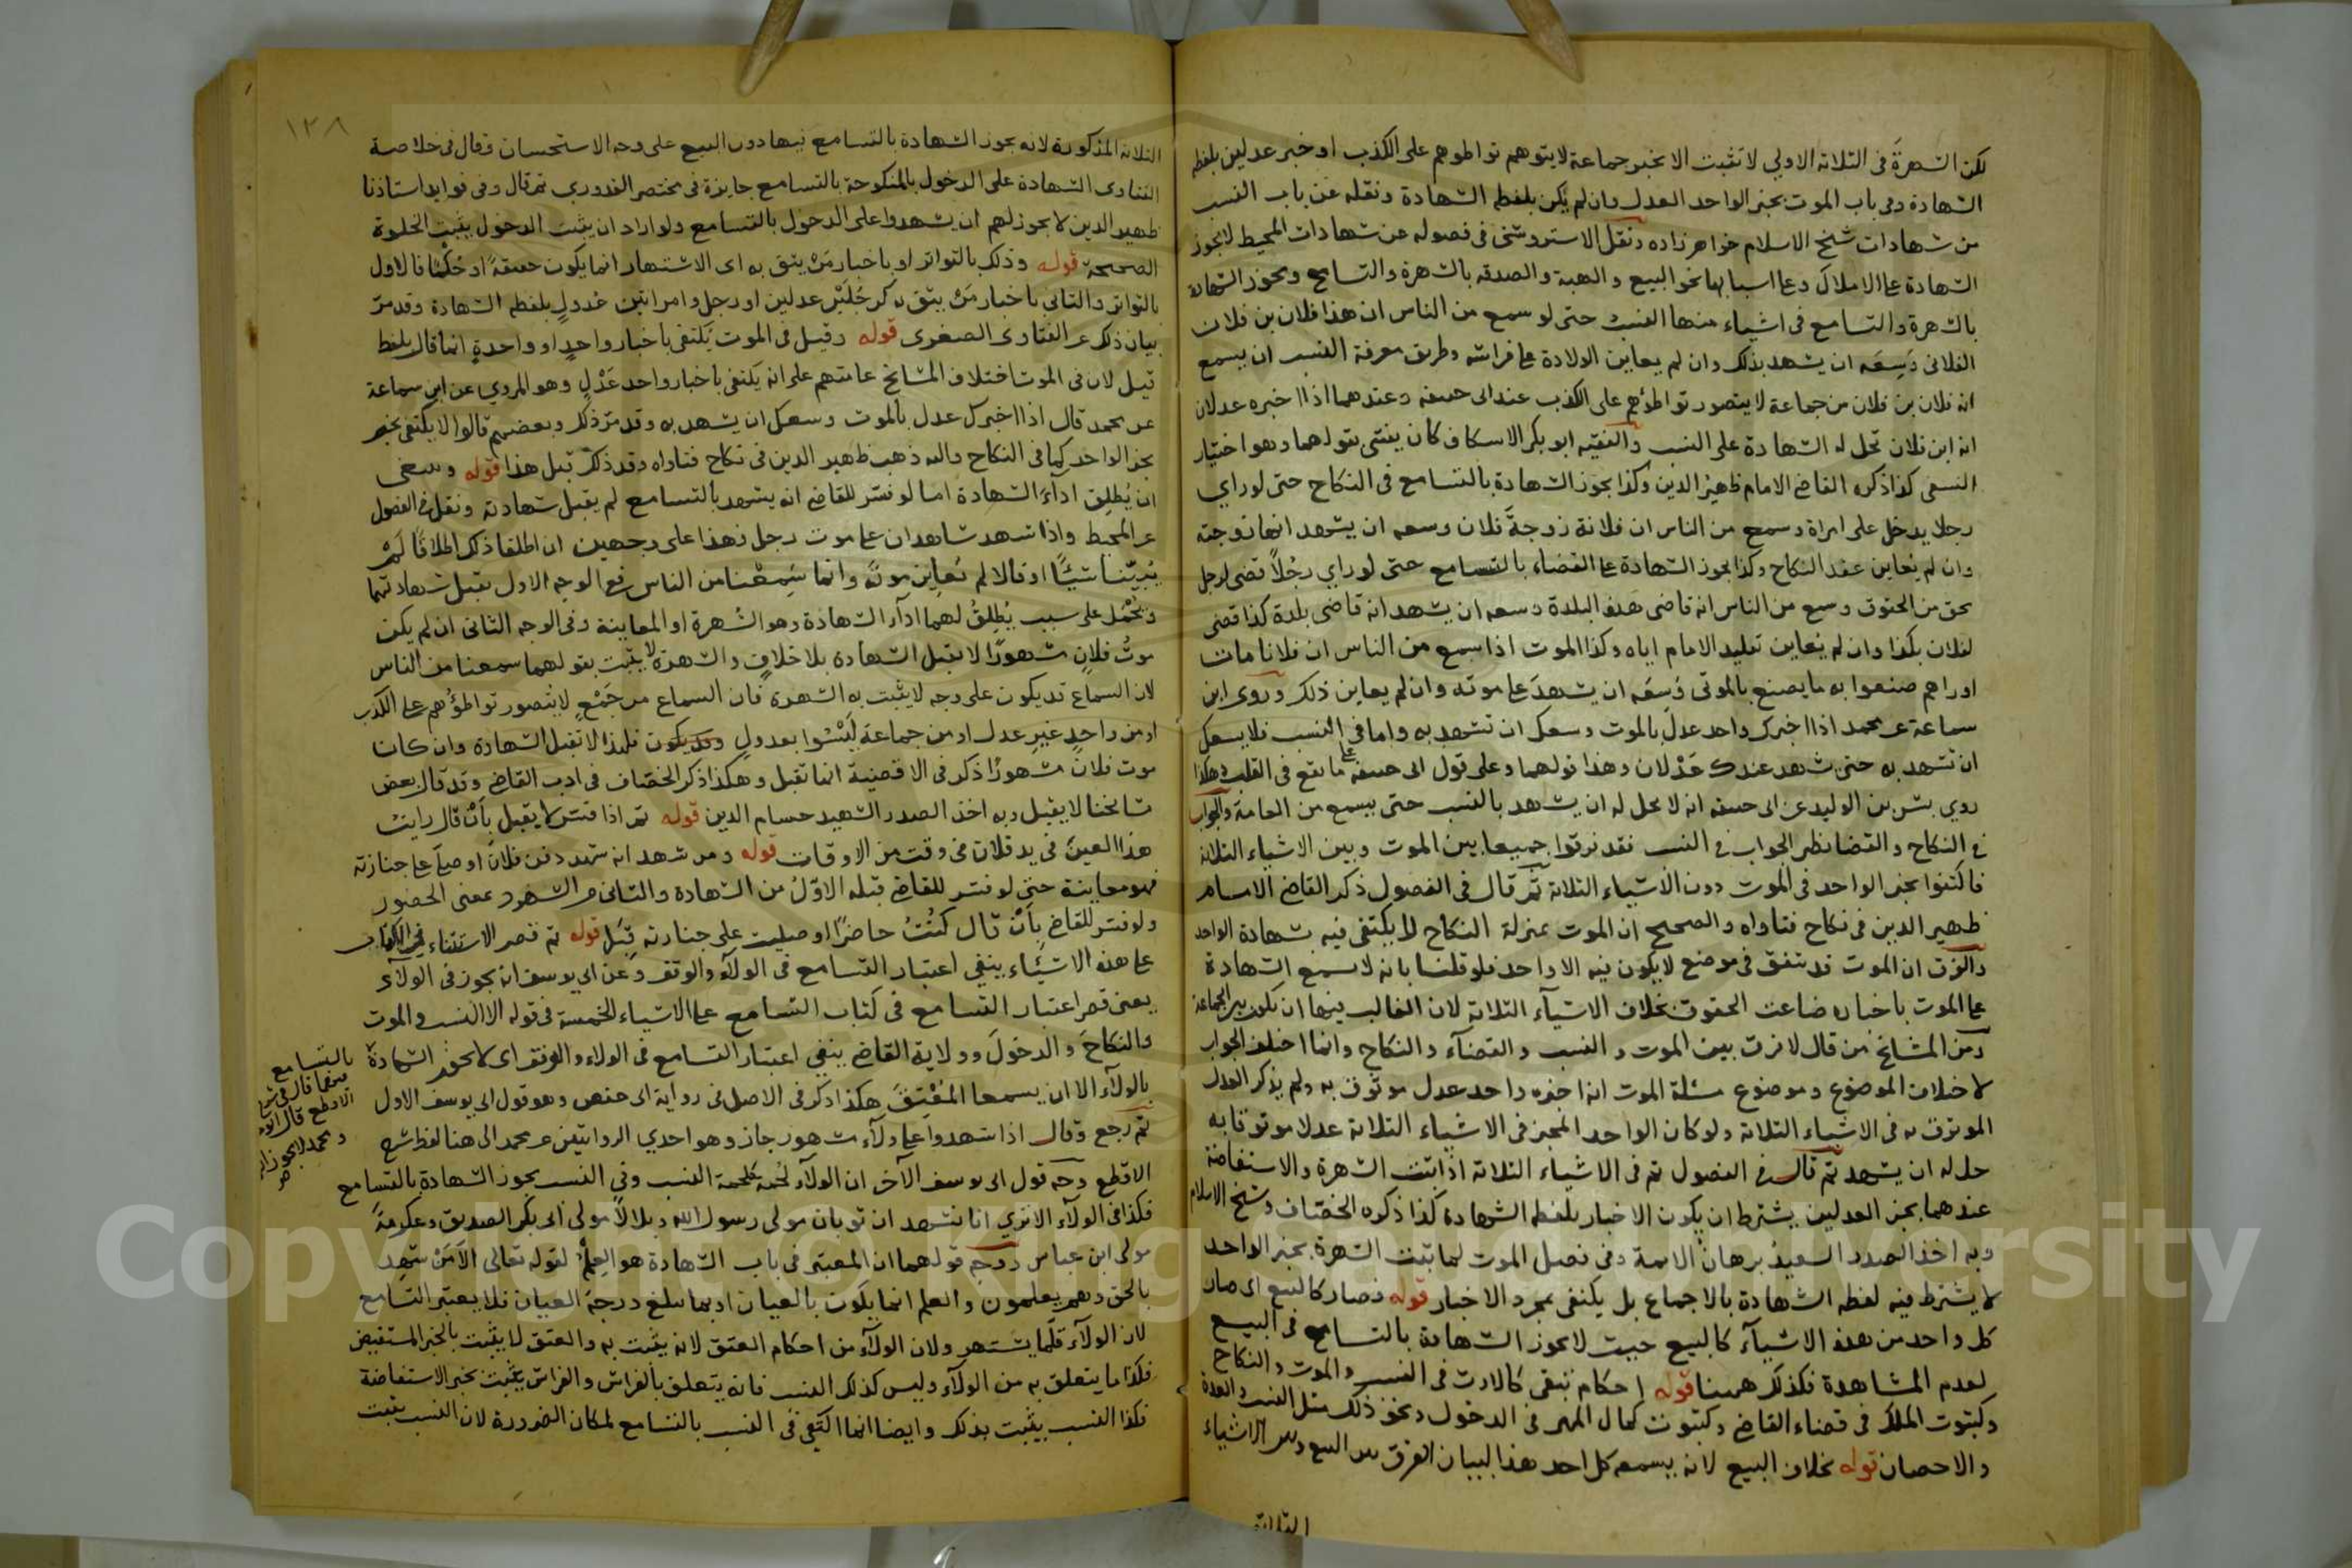 لكن الشهرة في الثلاثة الاولي لا تثبت الا بخبر جماعة لا يتوهم تواطوهم على الكذب او خبر عدلين بلفظ
الشهادة وفي باب الموت بخبر الواحد العدل وان لم يكن بلفظ الشهادة ونقله عن باب النسب
من شهادات شيخ الاسلام خواهر زاده ونقل الاستروشني في فصوله عن شهادات المحيط لا يجوز
الشهادة على الاملاك وعلى اسبابها نحو البيع والهبة والصدقه بالشهرة والتسامع ويجوز الشهادة
بالشهرة والتسامع في اشياء منها النسب حتى لو سمع من الناس ان هذا فلان بن فلان
الفلاني وَسِعَه ان يشهد بذلك وان لم يعاين الولادة على فراشه وطريق معرفة النسب ان يسمع
انه فلان بن فلان من جماعة لا يتصور تواطؤهم على الكذب عند ابى حنيفة وعندهما اذا اخبره عدلان
انه ابن فلان تحل له الشهادة على النسب والفقيه ابو بكر الاسكاف كان يفتي بقولهما وهو اختيار
النسفى كذا ذكره القاضي الامام ظهير الدين وكذا يجوز الشهادة بالتسامع في النكاح حتى لو راي
رجلا يدخل على امراة وسمع من الناس ان فلانة زوجة فلان وسعه ان يشهد انها زوجته
وان لم يعاين عقد النكاح وكذا يجوز الشهادة على القضاء بالتسامع حتى لو راي رجُلاً قضى لرجل
بحق من الحقوق وسمع من الناس انه قاضى هذه البلدة وسعه ان يشهد انه قاضى بلدة كذا قضى
لفلان بكذا وان لم يعاين تقليد الامام اياه وكذا الموت اذا سمع من الناس ان فلانا مات
اوراهم صنعوا به ما يصنع بالموتى وَسِعَه ان يشهدَ على موته وان لم يعاين ذلك وروى ابن
سماعة عن محمد اذا اخبرك واحد عدل بالموت وسعك ان تشهد به واما في النسب فلا يسعك
ان تشهد به حتى شهد عندك عَدْلان وهذا قولهما وعلى قول ابى حنيفة على ما يقع في القلب وهكذا
روي بشر بن الوليد عن ابى حنيفة انه لا يحل له ان يشهد بالنسب حتى يسمع من العامة والجواب
في النكاح والقضا نظير الجواب في النسب فقد فرقوا جميعا بين الموت وبين الاشياء الثلاثة
فاكتفوا بخبر الواحد في الموت دون الاشياء الثلاثة ثم قال في الفصول ذكر القاضي الامام
ظهير الدين في نكاح فتاواه والصحيح ان الموت بمنزلة النكاح لا يكتفى فيه بشهادة الواحد
والفرق ان الموت قد يتفق في موضع لا يكون فيه الا واحد فلو قلنا بانه لا يسمع الشهادة
على الموت باخباره ضاعت الحقوق بخلاف الاشياء الثلاثة لان الغالب فيها ان يكون بين الجماعة
ومن المشايخ من قال لا فرق بين الموت والنسب والقضآء والنكاح وانما اختلف الجواب
لاختلاف الموضوع وموضوع مسئلة الموت انه اخبره واحد عدل موثوق به ولم يذكر العدل
الموثوق به في الاشياء الثلاثة ولو كان الواحد المخبر في الاشياء الثلاثة عدلا موثوقا به
حل له ان يشهد ثم قال في الفصول ثم في الاشياء الثلاثة اذا ثبتت الشهرة والاستفاضة
عندهما بخبر العدلين يشترط ان يكون الاخبار بلفظ الشهادة كذا ذكره الخصّاف وشيخ الاسلام
وبه اخذ الصدر السعيد برهان الائمة وفي فصل الموت لما ثبتت الشهرة بخبر الواحد
لا يشترط فيه لفظه الشهادة بالاجماع بل يكتفى بمجرد الاخبار قوله فصار كالبيع اى صار
كل واحد من هذه الاشيآء كالبيع حيث لا يجوز الشهادة بالتسامع في البيع
لعدم المشاهدة فكذلك ههنا قوله احكام تبقى كالارث في النسب والموت والنكاح
وكثبوت الملك في قضاء القاضي وكثبوت كمال المهر في الدخول ونحو ذلك مثل النسب والعدة
والاحصان قوله بخلاف البيع لانه يسمعه كل احد هذا لبيان الفرق بين البيع وبين الاشياء
الثلاثة
١٣٨
الثلاثة المذكورة لانه يجوز الشهادة بالتسامع فيها دون البيع على وجه الاستحسان وقال في خلاصة
الفتاوى الشهادة على الدخول بالمنكوحة بالتسامع جايزة في مختصر القدوري ثم قال وفي فوايد استاذنا
ظهير الدين لا يجوز لهم ان يشهدوا على الدخول بالتسامع ولو اراد ان يثبت الدخول يثبت الخلوة
الصحيحة قوله وذلك بالتواتر او باخبار مَنْ يثق به اى الاشتهار انما يكون حقيقةً او حُكْمًا فالاول
بالتواتر والثاني باخبار مَنْ يثق به كرجُلَيْن عدلين او رجل وامراتين عُدولٍ بلفظه الشهادة وقد مرّ
بيان ذلك عن الفتاوى الصغرى قوله وقيل في الموت يكتفى باخبار واحدٍ او واحدةٍ انما قال بلفظ
قيل لان في الموت اختلاف المشايخ عامتهم على انه يكتفى باخبار واحد عَدْلٍ وهو المروي عن ابن سماعة
عن محمد قال اذا اخبرك عدل بالموت وسعك ان يشهد به وقد مرّ ذلك وبعضهم قالوا لا يكتفى بخبر
بخبر الواحد كما في النكاح واليه ذهب ظهير الدين في نكاح فتاواه وقد ذكر قبل هذا قوله وينبغى
ان يُطلِق ادآءَ الشهادة اما لو فسّر للقاضي انه يشهد بالتسامع لم يقبل شهادته ونقل في الفصول
عن المحيط واذا شهد شاهدان على موت رجل فهذا على وجهين ان اطلقا ذلك اطلاقًا لَمْ
يُبيّنا شيئًا او قالا لم نُعاين موته وانما سَمِعْنا من الناس ففي الوجه الاول تقبل شهادتهما
ويُحْمل على سبب يُطلِقُ لهما ادآءَ الشهادة وهو الشهرة او المعاينة وفي الوجه الثاني ان لم يكن
موتُ فلانٍ مشهورًا لا تقبل الشهادة بلا خلافٍ والشهرة لا يثبت بقولهما سمعنا من الناس
لان السماع قد يكون على وجه لا يثبت به الشهرة فان السماع من جَمْعٍ لا يُتصور تواطؤُهم على الكذب
او من واحدٍ غيرِ عدل او من جماعة ليْسُوا بعدولٍ وقد يكون فلهذا لا تقبل الشهادة وان كان
موت فلان مشهورًا ذكر في الاقضية انها تقبل وهكذا ذكر الخصّاف في ادب القاضي وقد قال بعض
مشايخنا لا يقبل وبه اخذ الصدر الشهيد حسام الدين قوله ثم اذا فسّر لا يقبل بأنْ قال رايت
هذا العين في يد فلان في وقت من الاوقات قوله ومن شهد انه شهد دفن فلان او صلّى على جنازته
فهو معاينة حتى لو فسر للقاضي قبله الاوّلُ من الشهادة والثاني من الشهود بمعنى الحضور
ولو فسّر للقاضي بِأَنْ قال كُنْتُ حاضرًا او صليت على جنازته قُبل قوله ثم قصر الاستثناء في الكتاب
على هذه الاشيآء ينفي اعتبار التسامع في الولآء والوقف وعن ابى يوسف انه يجوز في الولآء
يعنى قصر اعتبار التسامع في كتاب التسامع على الاشياء الخمسة في قوله الا النسب والموت
والنكاحَ والدخولَ وولاية القاضي ينفي اعتبار التسامع في الولاء والوقف اى لا يجوز الشهادة
بالولآء الا ان يسمعا المُعْتِقَ هكذا ذكر في الاصل في رواية ابى حفص وهو قول ابى يوسف الاول
ثم رجع وقال اذا شهدوا على ولآء مشهور جاز وهو احدي الروايتين عن محمد الى هنا لفظ شرح
الاقطع وجه قول ابى يوسف الآخر ان الولآء لُحمة كلحمة النسب وفي النسب يجوز الشهادة بالتسامع
فكذا في الولآء الا تري انا نشهد ان ثوبان مولى رسول الله وبلالاً مولى ابى بكر الصديق وعكرمةَ
مولى ابن عباس ووجه قولهما ان المعتبر في باب الشهادة هو العلمُ لقوله تعالى الاّ مَنْ شهِد
بالحق وهم يعلمون والعلم انما يكون بالعيان او بما يبلغ درجة العيان فلا يعتبر التسامع
لان الولآء قلّما يشتهر ولان الولآء من احكام العتق لانه يثبت به والعتق لا يثبت بالخبر المستفيض
فكذا ما يتعلق به من الولآء وليس كذلك النسب فانه يتعلق بالفراش والفراش يثبت بخبر الاستفاضة
فكذا النسب يثبت بذلك وايضا انما اكتفي في النسب بالتسامع لمكان الضرورة لان النسب يثبت
بالتسامع
الاقطع قال ابو
ومحمد لا يجوز
Copyright © King Saud University